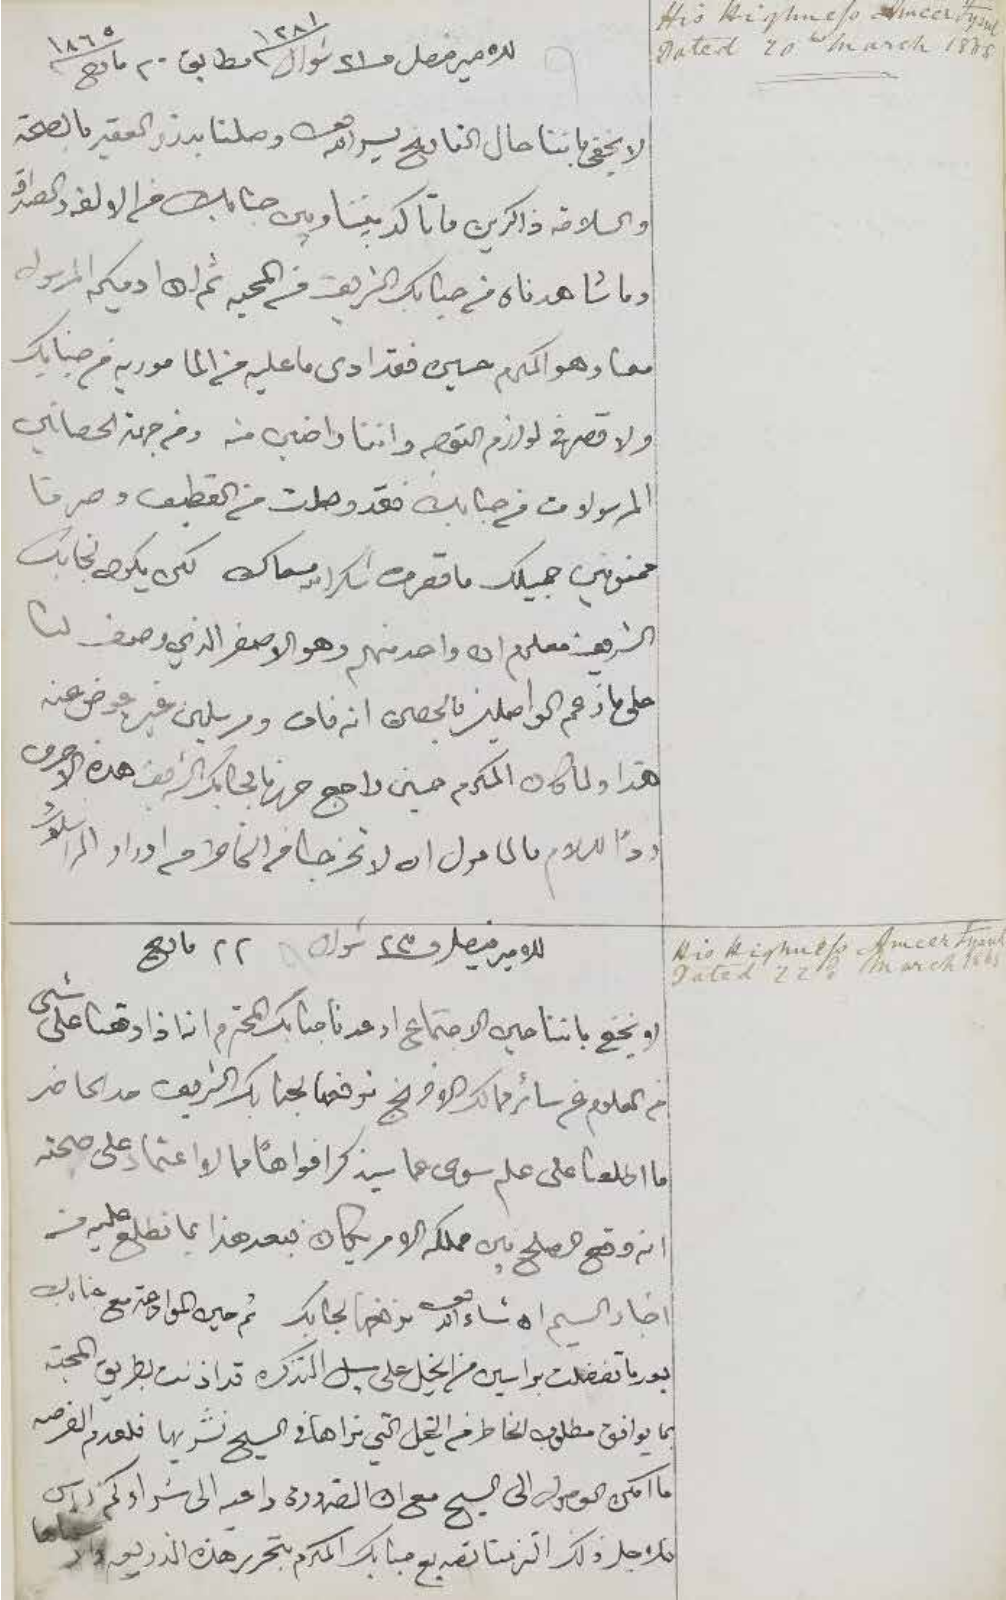 His Highness Ameer Fysul
Dated 20th March 1865
للامير فيصل في ٢١ شوال ١٢٨١ مطابق ٢٠ مارچ ١٨٦٥
لا يخفى باننا حال التاريخ بيسر الله تعالى وصلنا بندر العقير بالصحة
والسلامة ذاكرين ما تأكد بيننا وبين جنابك من الالفة والصداقة
وما شاهدناه من جنابك الشريف من المحبة ثم ان ادميكم المرسول
معنا وهو المكرم حسين فقد ادى ما عليه من المامورية من جنابك
ولا قصر في لوازم التوجه واننا راضين منه ومن جهة الحصانين
المرسولات من جنابك فقد وصلت من القطيف وصرنا
ممنونين جميلك ما قصرت شكر الله مسعاك لكن يكون لجنابك
الشريف معلوم ان واحد منهم وهو الاصفر الذي وصف لنا
على ما زعم الواصلين بالحصن انه فات ومرسلين غيره عوض عنه
هذا ولما كان المكرم حسين راجع حررنا لجنابك الشريف هذه الاحرف
ودمًا للسلام بالمامول ان لا تخرجنا من الخاطر من اوراد المراسلات
His Highness Ameer Fysul
Dated 22d March 1865
للامير فيصل في ٢٣ شوال ٢٢ مارچ
لا يخفى باننا حين الاجتماع اوعدنا جنابك المحترم اننا اذا وقفنا على شيء
من العلوم عن سائر ممالك الافرنج نوقفها لجنابك الشريف حد الحاضر
ما اطلعنا على علم سوى عما سيذكر افواهًا مما لا اعتماد على صحته
انه وقع الصلح بين مملكة الامريكان فبعد هذا بما نطلع عليه من
اخبار السيم ان شاء الله تعالى نوقفها لجنابك ثم حين المواجهة مع جنابك
بعد ما تفضلت براسين من الخيل على سبيل التذكرة قد اذنت بطريق المحبة
بما يوافق مطلوب الخاطر من الخيل التي نراها في السيح نشريها فلعدم الفرصة
ما امكن الوصول الى السيح مع ان الضرورة داعية الى شراء كم راس
فلاجل ذلك التزمنا تصديع جنابك المكرم بتحرير هذه الذريعة